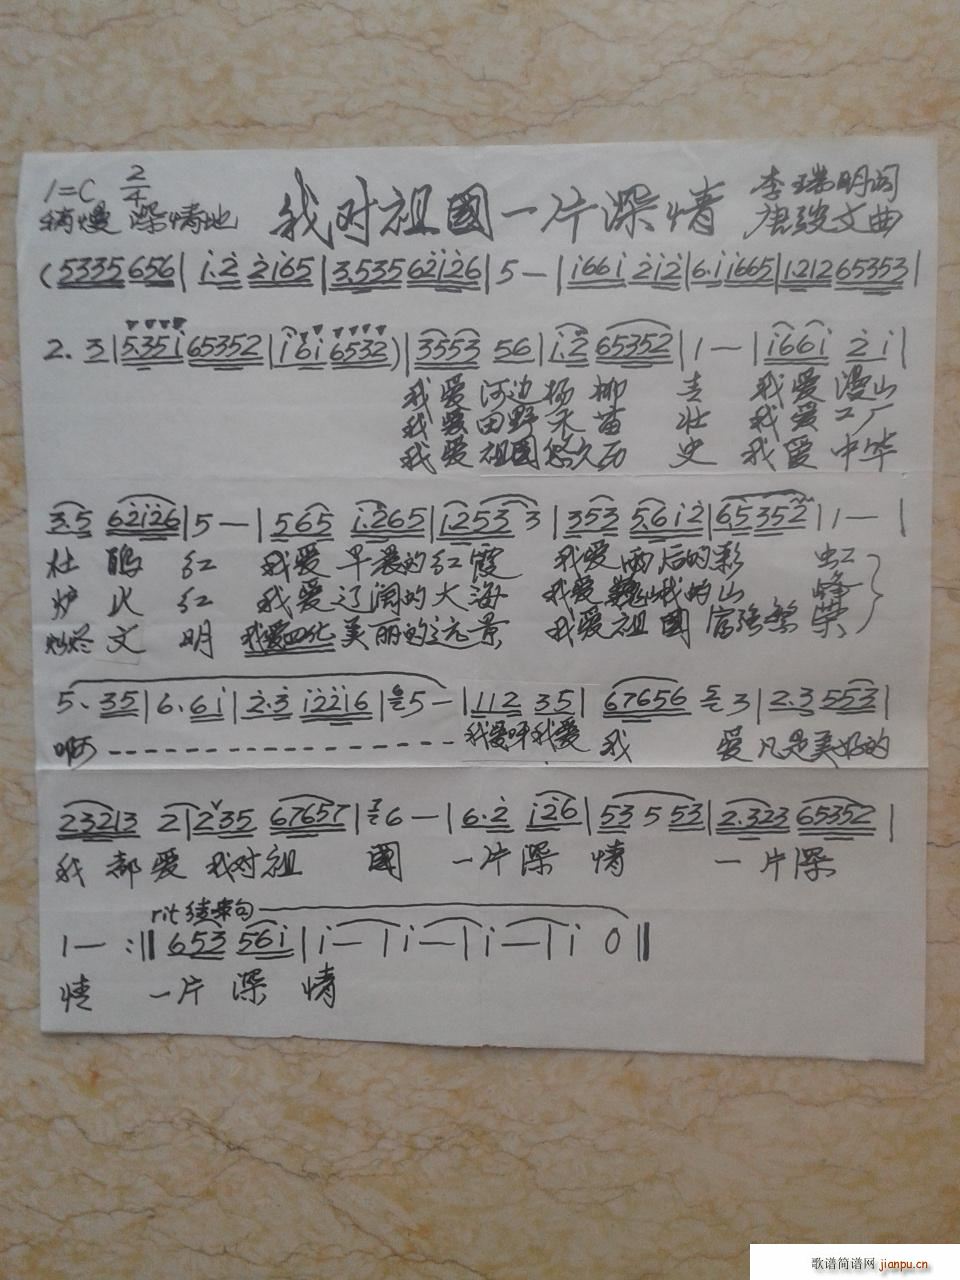 1=C 2/4 我对祖國一片深情 李瑞明词
稍慢 深情地 唐毅文曲
(5335 656 | i.2̇ 2̇i65 | 3.535 62̇i2̇6 | 5 — | i66i 2̇i2̇ | 6.i i665 | 1.212 65353 |
2. 3 | 5.35i 65352 | i6i 6532) | 3553 56 | i.2̇ 65352 | 1 — | i66i 2̇ i |
我爱河边杨柳 青 我爱漫山
我爱田野禾苗 壮 我爱工厂
我爱祖国悠久历 史 我爱中华
3.5 62̇i2̇6 | 5 — | 565 i.2̇65 | i2̇53 3 | 353 5.6i2̇ | 6.5352 | 1 — |
杜鹃 红 我爱早晨的红霞 我爱雨后的彩 虹
炉火 红 我爱辽阔的大海 我爱巍峨的山 峰
灿烂文 明 我爱四化美丽的远景 我爱祖國富强繁 荣
5. 35 | 6. 6i | 2̇.3̇ i2̇2̇i6 | 6 5 — | 112 35 | 67656 5 3 | 2.3 553 |
啊 — — — — — — 我爱呀我爱 我 爱凡是美好的
23213 2 | 235 67657 | 7 6 — | 6.2̇ i2̇6 | 53 5 53 | 2.323 65352 |
我 都爱 我对祖 國 一片深 情 一片深
rit 结束句
1 — :‖ 653 56i | i — | i — | i — | i 0 ‖
情 一片 深 情
歌谱简谱网 jianpu.cn